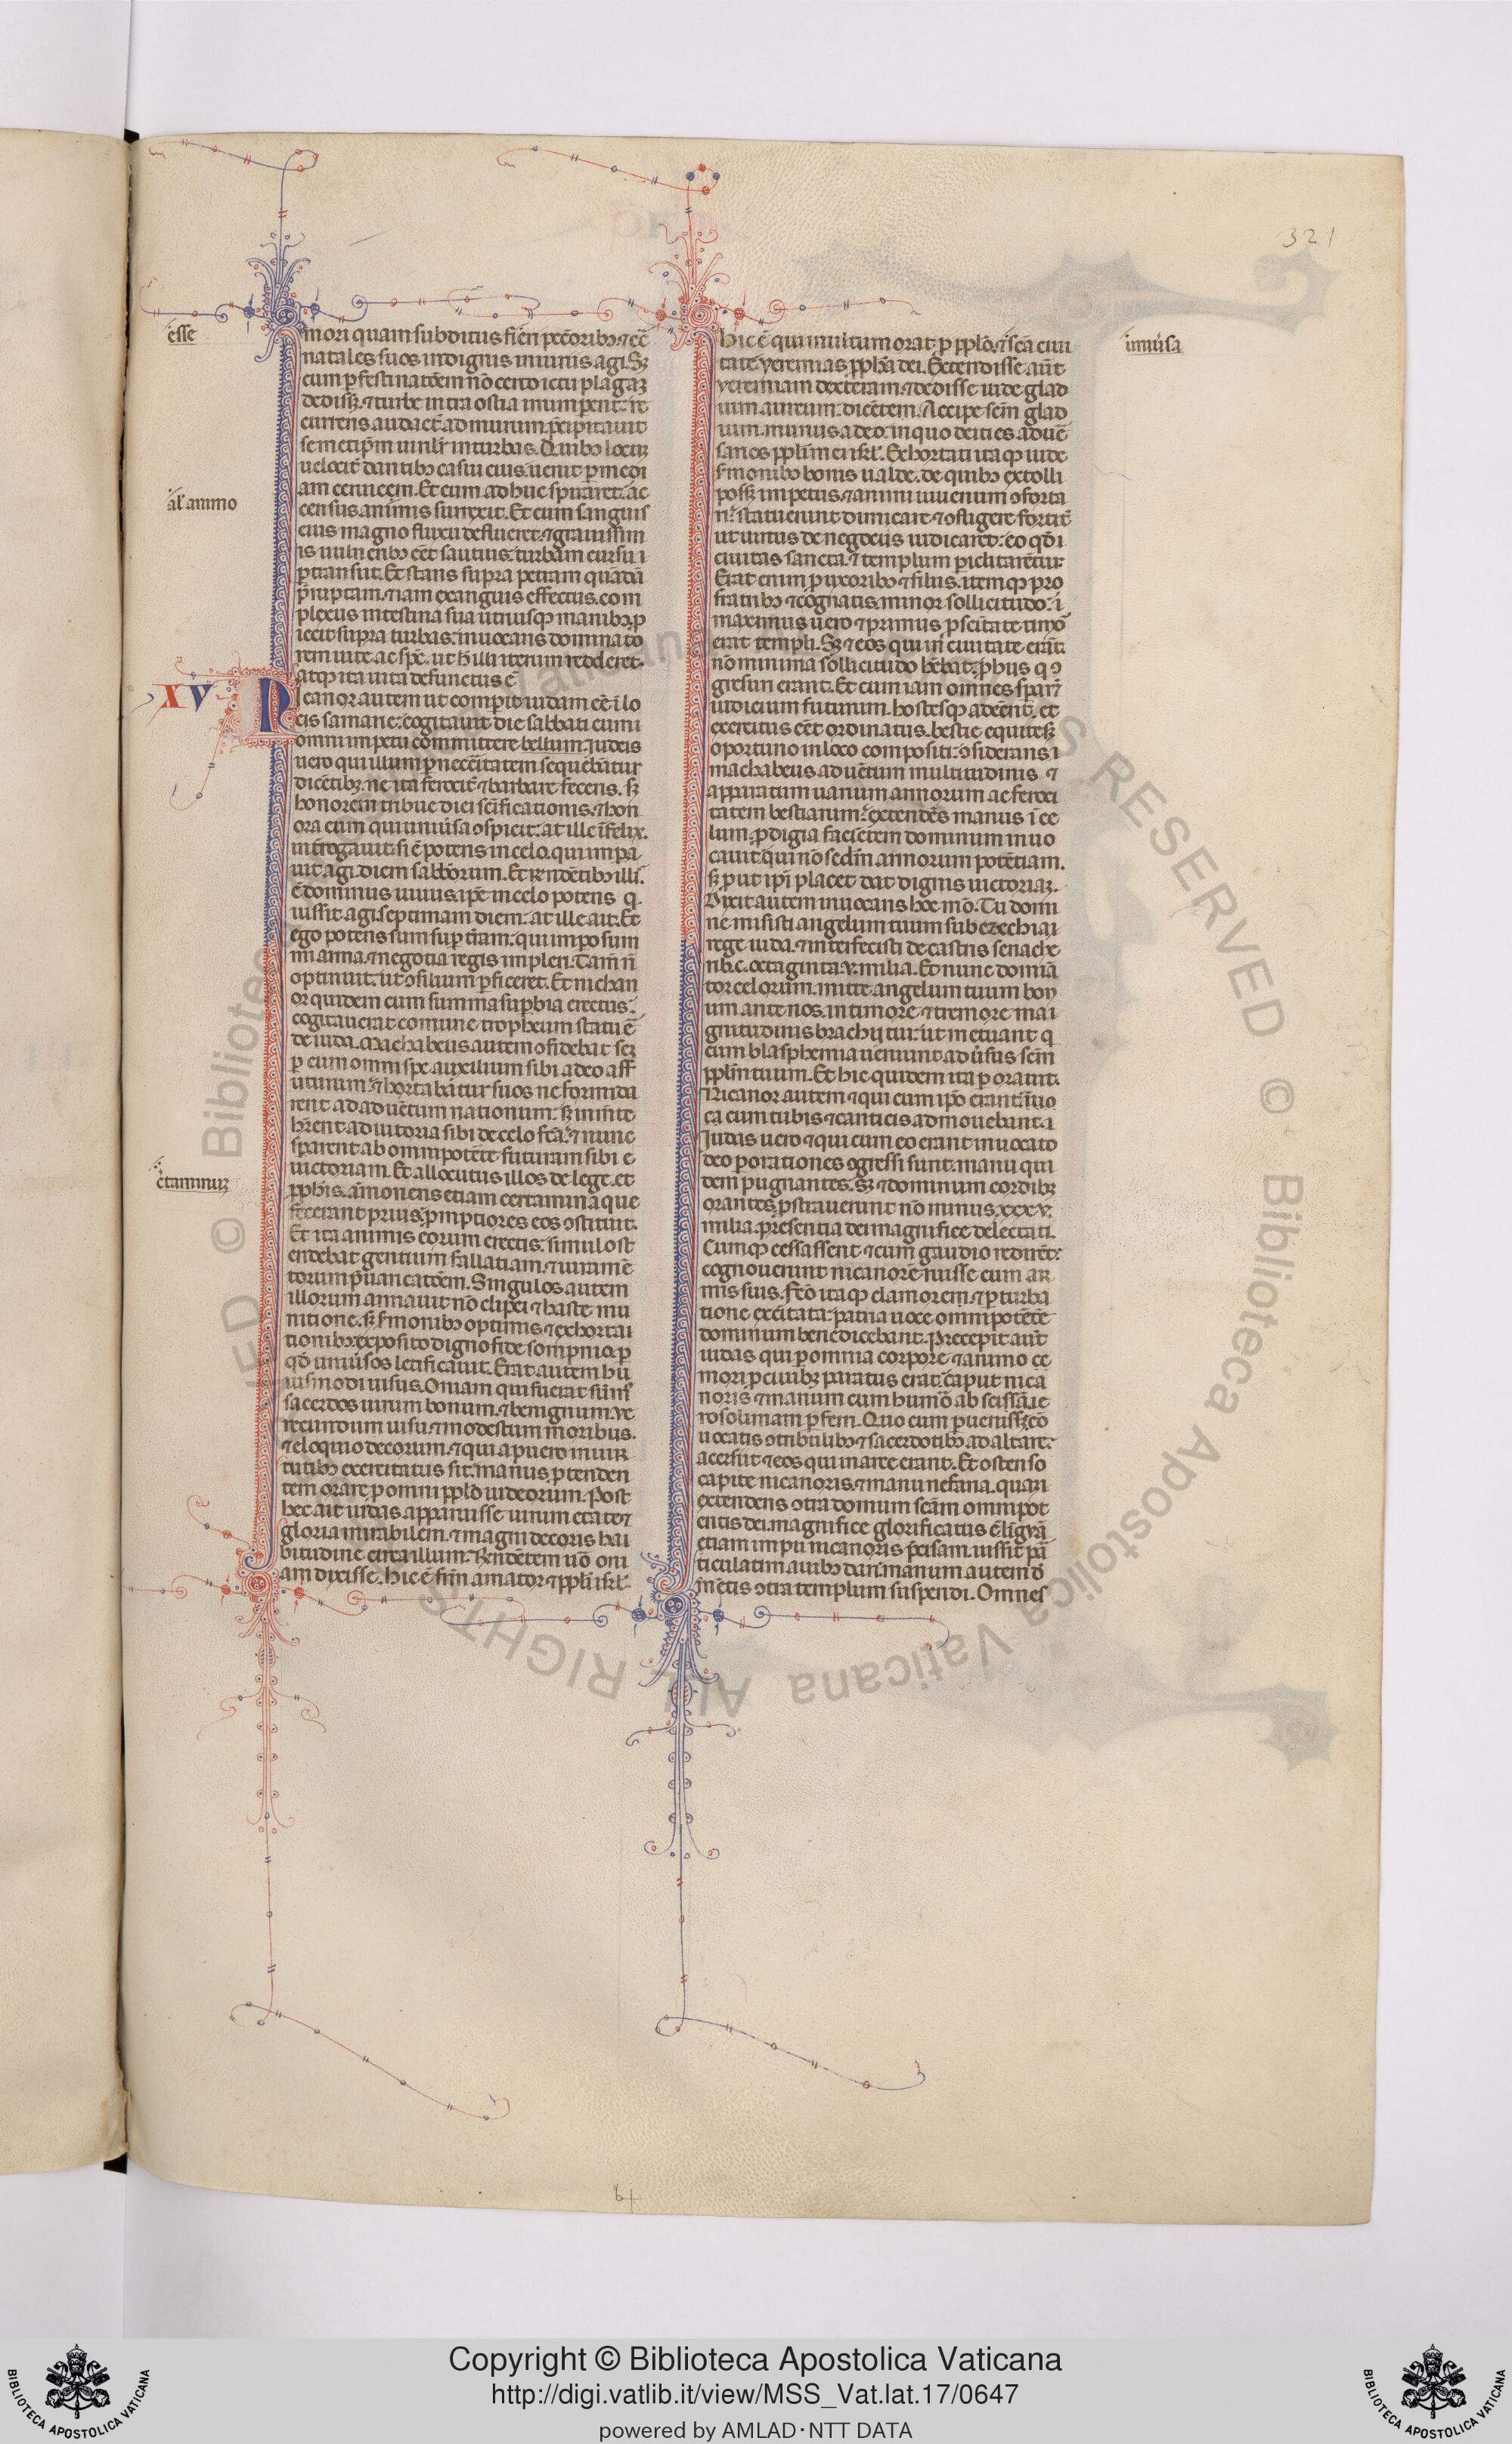 321
esse
mori quam subditus fieri pecc̄oribꝫ ⁊ cc̄
natales suos indignis iniuriis agi. Sꝫ
cum ꝑ festinatōem nō certo ictu plagaꝫ
dedissꝫ. ⁊ turbe intra ostia irrumperent: re
currens audact̄ ad murum. p̄cipitauit
semetip̄m uirilit̄ in turbas. Quibꝫ locuꝫ
uelocit̄ dantibꝫ casui eius. uenit ꝑ medi
am ceruicem. Et cum adhuc spiraret. ac
al' animo
census animis surrexit. Et cum sanguis
eius magno fluxu deflueret. ⁊ grauissim
is uulneribꝫ eēt sautius. turbam cursu i
ꝑtransiit. Et stans supra petram quādā
p̄ruptam. ⁊ iam exanguis effectus. com
plexus intestina sua utrisqꝫ manibꝫ. ꝓ
iecit supra turbas. inuocans dominato
rem uite ac sps̄. ut h̄ illi iterum redderet.
atqꝫ ita uita defunctus ē
XV
Nicanor autem ut comperit iudam eē ī lo
cis samarie: cogitauit die sabbati cum i
omni impetu committere bellum. Iudeis
uero qui illum ꝑ necēitatem sequebātur
dicētibꝫ. ne ita ferocit̄ ⁊ barbare feceris. sꝫ
honorem tribue diei scīficationis. ⁊ hon
ora eum qui uniūsa ɔspicit: at ille īfelix.
int̄rogauit. si ē potens in celo. qui impa
uit agi. diem sabb̄torum. Et rn̄dētibꝫ illi.
ē dominus uiuus. ip̄e in celo potens q.
iussit agi. septimam diem: at ille ait. Et
ego potens sum suꝑ t̄ram: qui impo sum
mi arma. ⁊ negotia regis impleri. Tam̄ n̄
optinuit. ut ɔsilium ꝑficeret. Et nichan
or quidem cum summa suꝑbia erectus.
cogitauerat comune tropheum statuē
de iuda. Machabeus autem ɔfidebat seꝫ
ꝑ cum omni spe auxilium sibi a deo aff
uturum. ⁊ hortabātur suos ne formida
rent ad aduētum nationum. sꝫ in mēte
hr̄ent adiutoria sibi de celo fc̄a. ⁊ nunc
sꝑarent ab omnipotēte futuram sibi e
uictoriam. Et allocutus illos de lege. et
c̄taminuꝫ
ꝓph̄is. āmonens etiam certamina que
fecerant prius. ꝓmptiores eos ɔstituit.
Et ita animis eorum erectis: simul ost
endebat gentium fallatiam. ⁊ iuramē
torum p̄uaricatōem. Singulos autem
illorum armauit nō clipei ⁊ haste mu
nitione. sꝫ s̄monibꝫ optimis ⁊ exhortai
tionibꝫ. exposito digno fide sompnio. ꝑ
qd̄ uniūsos letificauit. Erat autem hu
iuscmodi uisus. Oniam qui fuerat sūms
sacerdos uirum bonum. ⁊ benignum. ue
recundum uisu. ⁊ modestum moribus.
⁊ eloquio decorum. ⁊ qui a puero in uir
tutibꝫ exercitatus sit. manus ꝓtenden
tem orare. ꝓ omni pplo iudeorum. Post
hec ait iudas apparuisse uirum etate ⁊
gloria mirabilem. ⁊ magni decoris hai
bitudine circa illum. Rn̄dētem uō oni
am dixisse. Hic ē fr̄m amator ⁊ ppl̄i isrl'.
hic ē qui multum orat ꝓ pplō. ⁊ sc̄a ciui
tate yeremias ꝓph̄a dei. Extendisse aūt
yeremiam dexteram. ⁊ dedisse iude glad
ium aureum. dicētem. Accipe sc̄m glad
ium. munus a deo. in quo deicies aduē
sarios ppl̄i mei isrl'. Exhortati itaqꝫ iude
s̄monibꝫ bonis ualde. de quibꝫ extolli
possꝫ impetus. ⁊ animi iuuenum ɔforta
ri. statuerunt dimicare ⁊ ɔfligere fortit̄
ut uirtus de negociis iudicaret: eo qd̄ i
ciuitas sancta. ⁊ templum periclitarētur.
Erat enim ꝓ uxoribꝫ ⁊ filiis. itemqꝫ pro
fratribꝫ ⁊ cōgnatis. minor sollicitudo. i
maximus uero ⁊ primus ꝓ sc̄itate timor
erat templi. Sꝫ ⁊ eos qui in ciuitate erāt.
nō minima sollicitudo hēbat. ꝓ hiis q ɔ
gressuri erant. Et cum iam omnes sꝑarēt
iudicium futurum. hostesqꝫ adeēnt. et
exercitus eēt ordinatus. bestie equitesꝫ
oportuno in loco compositi: ɔsiderans i
machabeus aduētum multitudinis ⁊
apparatum uarium armorum ac feroci
tatem bestiarum. extendēs manus ī ce
lum. ꝓdigia faciētem dominum inuo
cauit. qui nō sedm̄ armorum potētiam.
sꝫ ꝓut ip̄i placet dat dignis uictoriaꝫ.
Dixit autem inuocans hoc mō. Tu domi
ne misisti angelum tuum sub ezechiai
rege iuda. ⁊ interfecisti de castris senache
rib. c. octaginta. v. milia. Et nunc domiā
tor celorum. mitte angelum tuum bon
um ante nos. in timore ⁊ tremore mai
gnitudinis brachij tui. ut metuant q
cum blasphemia ueniunt aduūsus sc̄m
ppl̄m tuum. Et hic quidem ita ꝑorauit.
Nicanor autem ⁊ qui cum ip̄o erant. īuo
ca cum tubis ⁊ canticis admouebant. i
Iudas uero ⁊ qui cum eo erant inuocato
deo ꝑ orationes ɔgressi sunt. manu qui
dem pugnantes. Sꝫ ⁊ dominum cordibꝫ
orantes. ꝓstrauerunt nō minus. xxxv.
milia. presentia dei magnifice delectati.
Cumqꝫ cessassent ⁊ cum gaudio redirēt:
cognouerunt nicanorē ruisse cum ar
mis suis. Fc̄o itaqꝫ clamorem. ⁊ ꝑturba
tione excitata: patria uoce omnipotētē
dominum benedicebant. Precepit aūt
iudas qui ꝑ omnia corpore ⁊ animo ee
mori ꝓ ciuibꝫ paratus erat. caput nica
noris ⁊ manum cum humō abscissā. ie
rosolimam ꝑferri. Quo cum peruenissꝫ. cō
uocatis ɔtribulibꝫ ⁊ sacerdotibꝫ ad altare:
acersiit ⁊ eos qui in arce erant. Et ostenso
capite nicanoris. ⁊ manu nefaria. quam
extendens ɔtra domum sc̄am omnipot
entis dei. magnifice glorificatus ē. līguā
etiam impii nicanoris p̄cisam. iussit pa
ticulatim auibꝫ dari. manum autem dē
mētis ɔtra templum suspendi. Omnes
iniuūsa
Copyright © Biblioteca Apostolica Vaticana
http://digi.vatlib.it/view/MSS_Vat.lat.17/0647
powered by AMLAD·NTT DATA
BIBLIOTECA APOSTOLICA VATICANA
BIBLIOTECA APOSTOLICA VATICANA